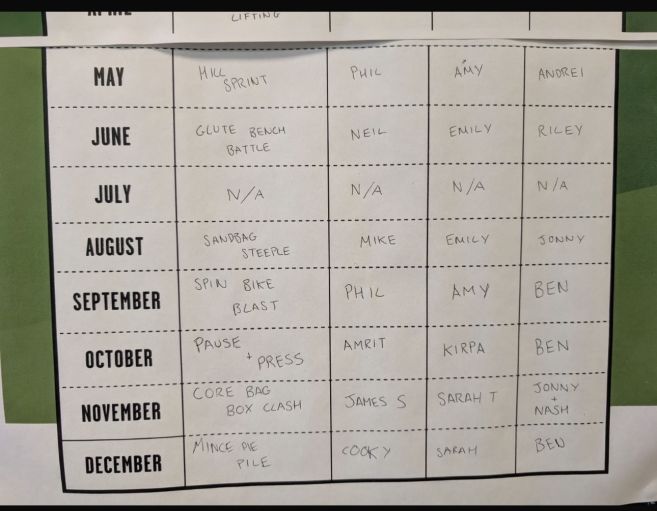 APRIL
LIFTING
MAY HILL SPRINT PHIL AMY ANDREI
JUNE GLUTE BENCH BATTLE NEIL EMILY RILEY
JULY N/A N/A N/A N/A
AUGUST SANDBAG STEEPLE MIKE EMILY JONNY
SEPTEMBER SPIN BIKE BLAST PHIL AMY BEN
OCTOBER PAUSE + PRESS AMRIT KIRPA BEN
NOVEMBER CORE BAG BOX CLASH JAMES S SARAH T JONNY + NASH
DECEMBER MINCE PIE PILE COOKY SARAH BEN